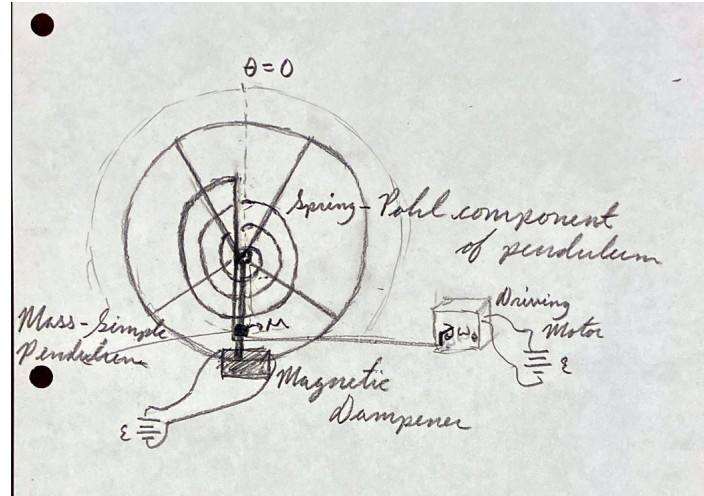 θ=0
Spring-Pohl component
of pendulum
Mass-Simple
Pendulum
M
Driving
Motor
ω₀
ε
Magnetic
Dampener
ε